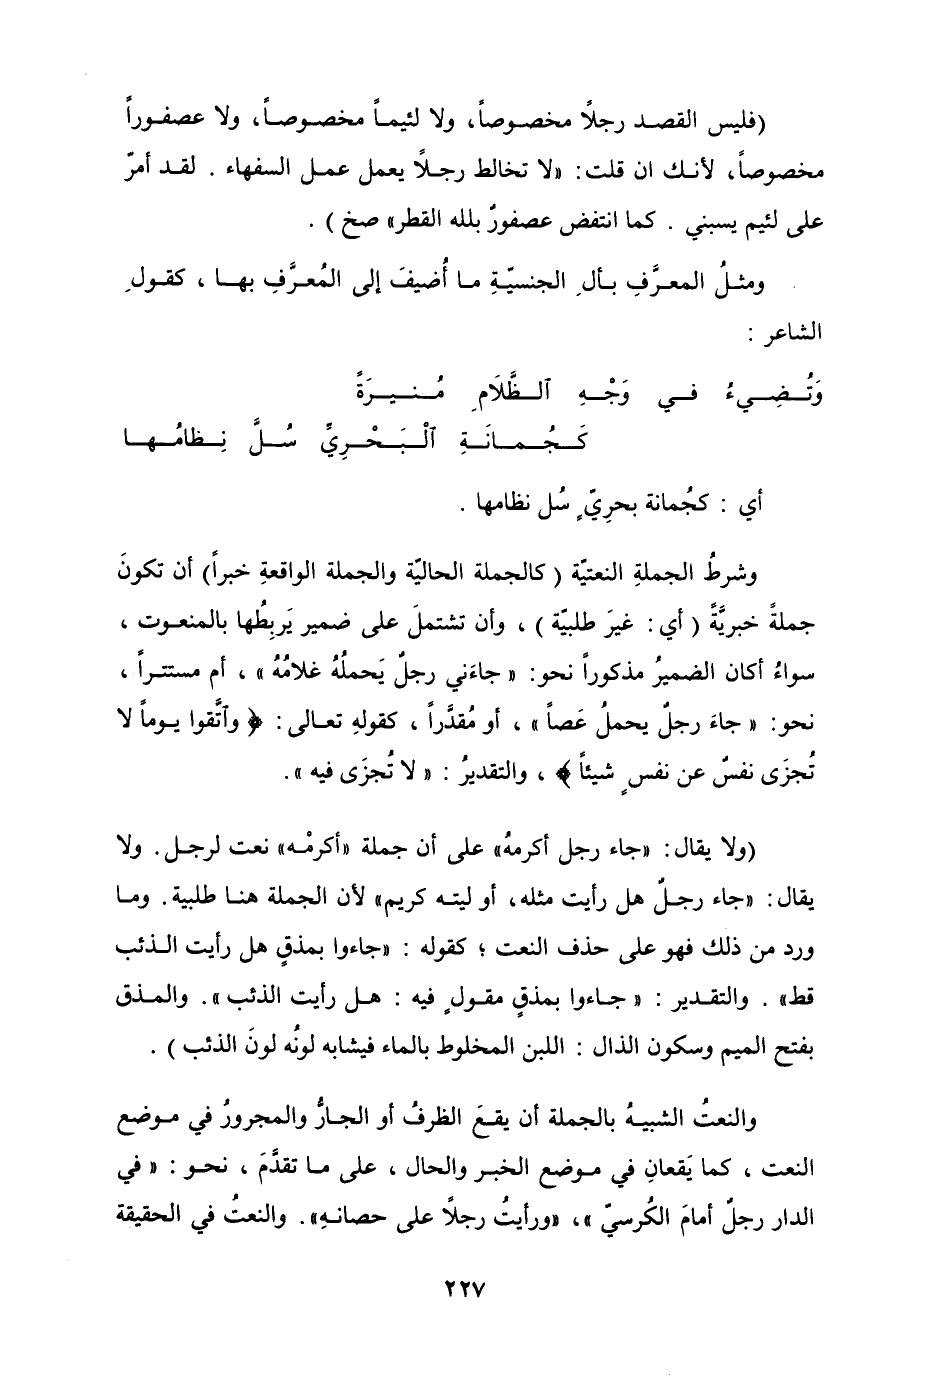 (فليس القصد رجلاً مخصوصاً، ولا لئيماً مخصوصاً، ولا عصفوراً
مخصوصاً، لأنك ان قلت: «لا تخالط رجلاً يعمل عمل السفهاء . لقد أمرّ
على لئيم يسبني . كما انتفض عصفورٌ بلله القطر» صخ ) .
ومثلُ المعرَّفِ بألِ الجنسيّةِ ما أُضيفَ إلى المُعرَّفِ بها ، كقولِ
الشاعر :
وَتُضِيءُ في وَجْهِ ٱلظَّلَامِ مُنيرَةً
كَجُمانَةِ ٱلْبَحْرِيِّ سُلَّ نِظامُها
أي : كجُمانة بحريّ ٍ سُل نظامها .
وشرطُ الجملةِ النعتيّة ( كالجملة الحاليّة والجملة الواقعةِ خبراً) أن تكونَ
جملةً خبريَّةً ( أي: غيرَ طلبيّة ) ، وأن تشتملَ على ضمير يَربِطُها بالمنعوت ،
سواءُ أكان الضميرُ مذكوراً نحو: « جاءَني رجلٌ يَحملُهُ غلامُهُ » ، أم مستتراً ،
نحو: « جاءَ رجلٌ يحملُ عَصاً » ، أو مُقدَّراً ، كقولهِ تعالى: ﴿ وٱتَّقوا يوماً لا
تُجزَى نفسٌ عن نفسٍ شيئاً ﴾ ، والتقديرُ : « لا تُجزَى فيه ».
(ولا يقال: «جاء رجل أكرمهُ» على أن جملة «أكرمْه» نعت لرجل. ولا
يقال: «جاء رجلٌ هل رأيت مثله، أو ليته كريم» لأن الجملة هنا طلبية. وما
ورد من ذلك فهو على حذف النعت ؛ كقوله : «جاءوا بمذقٍ هل رأيت الذئب
قط» . والتقدير : « جاءوا بمذقٍ مقولٍ فيه : هل رأيت الذئب ». والمذق
بفتح الميم وسكون الذال : اللبن المخلوط بالماء فيشابه لونُه لونَ الذئب ) .
والنعتُ الشبيهُ بالجملة أن يقعَ الظرفُ أو الجارُّ والمجرورُ في موضع
النعت ، كما يَقعانِ في موضع الخبر والحال ، على ما تقدَّمَ ، نحو : « في
الدار رجلٌ أمامَ الكُرسيّ »، «ورأيتُ رجلاً على حصانهِ». والنعتُ في الحقيقة
٢٢٧